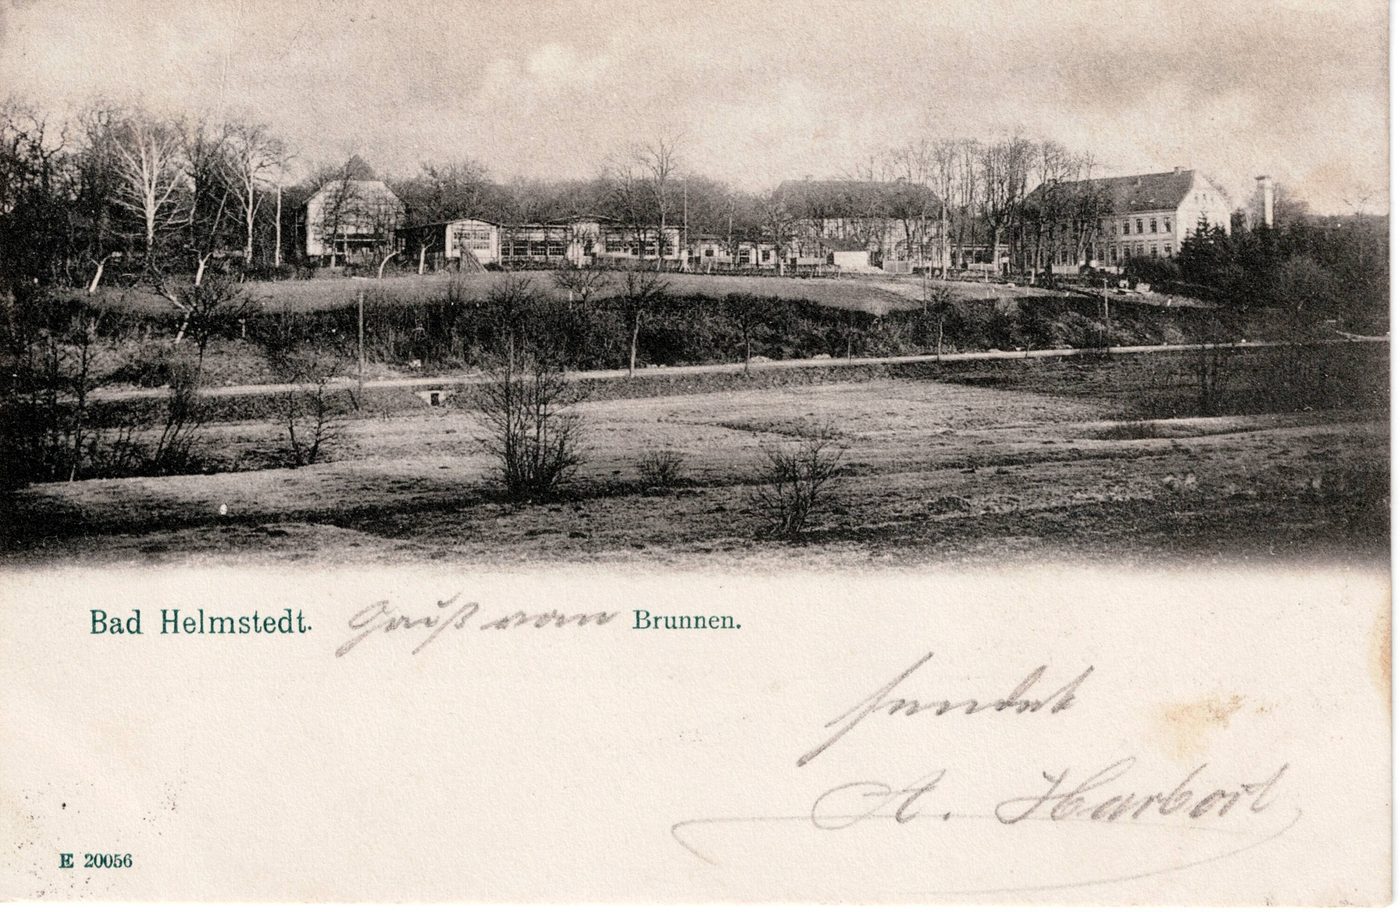 Bad Helmstedt. Gruß vom Brunnen.
sendet
A. Harbort
E 20056